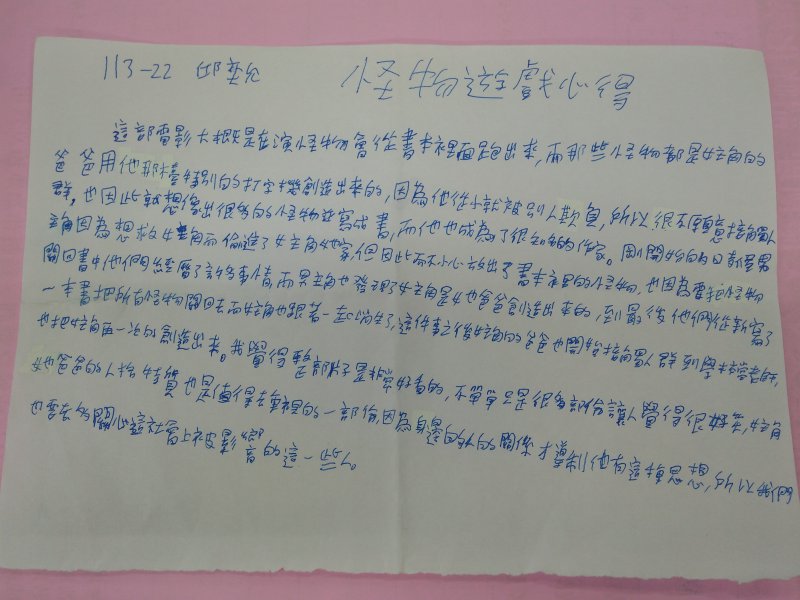 113-22 邱奕允 怪物遊戲心得
這部電影大概是在演怪物會從書本裡面跑出來,而那些怪物都是女主角的
爸爸用他那檯特別的打字機創造出來的,因為他從小就被別人欺負,所以很不願意接觸人
群,也因此就想像出很多的怪物並寫成書,而他也成為了很知名的作家。剛開始的
主角因為想救女主角而偷進了女主角她家,但因此而不小心放出了書本裡的怪物,也因為要把怪物
關回書中他們經歷了許多事情,而男主角也發現了女主角是她爸爸創造出來的,到最後他們從新寫了
一本書把所有怪物關回去而女主角也跟著一起消失了,這件事之後女主角的爸爸也開始接觸人群到學校當老師,
也把女主角再一次的創造出來。我覺得整部片子是非常好看的,不單單只是很多部份讓人覺得很好笑,女主角
她爸爸的人格特質也是值得去重視的一部份,因為身邊的人的關係才導制他有這種思想,所以我們
也要去多關心這社會上被影響的這一些人。